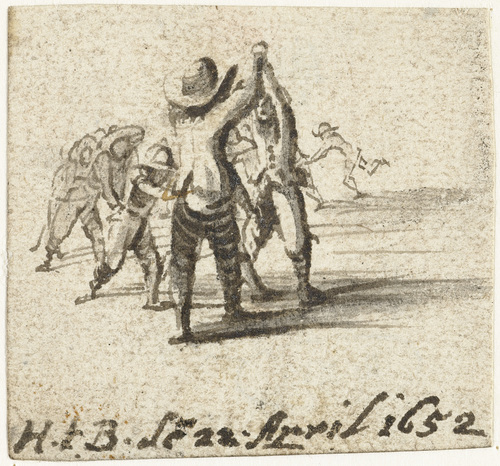 H.t.B. dē 22. April 1652